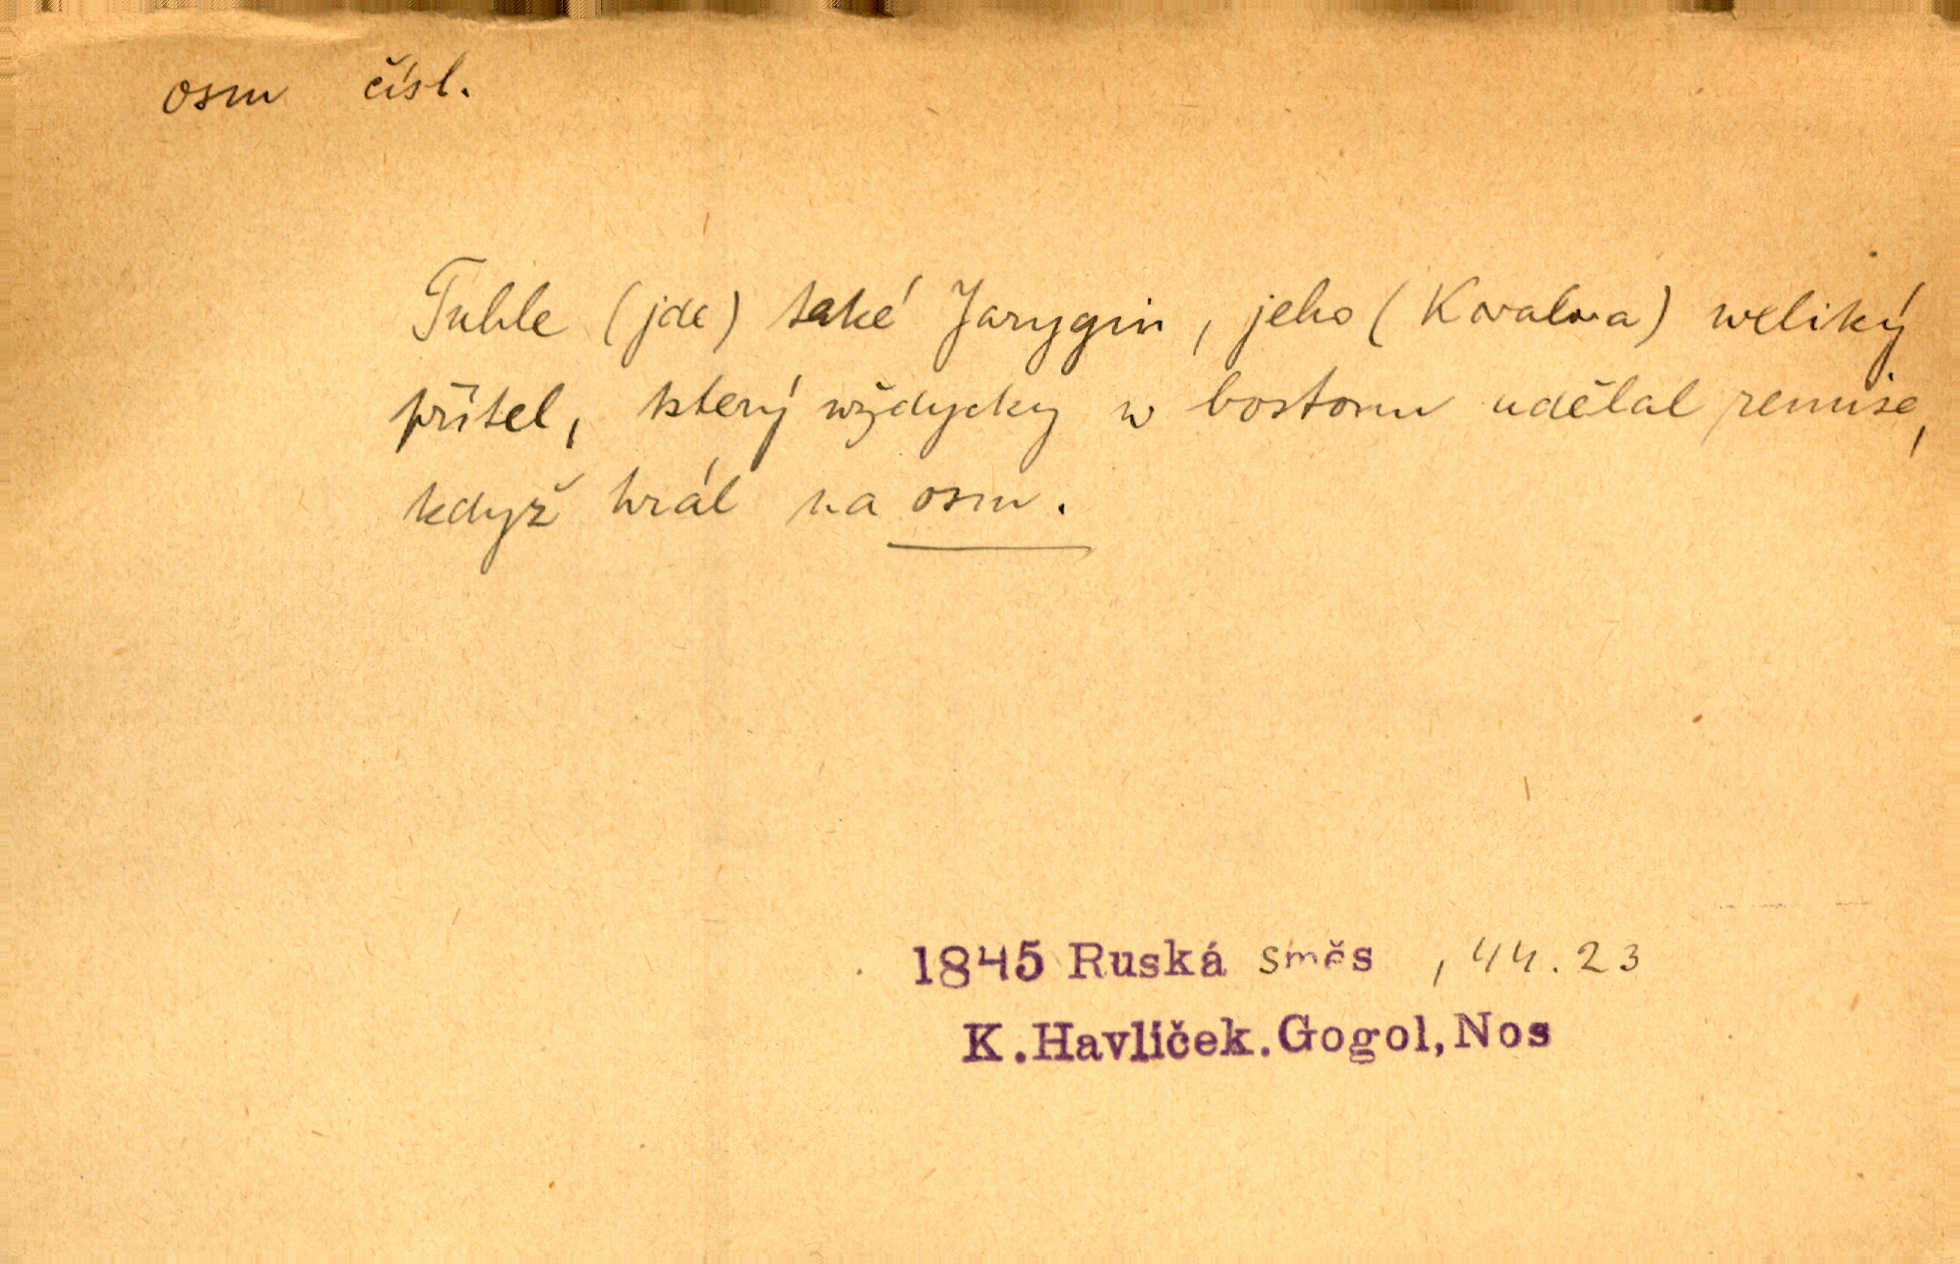 osm čísl.
Tuhle (jde) také Jarygin, jeho (Kovalova) weliký
přítel, který wždycky w bostonu udělal remise,
když hrál na osm.
1845 Ruská směs , 44.23
K.Havlíček.Gogol,Nos